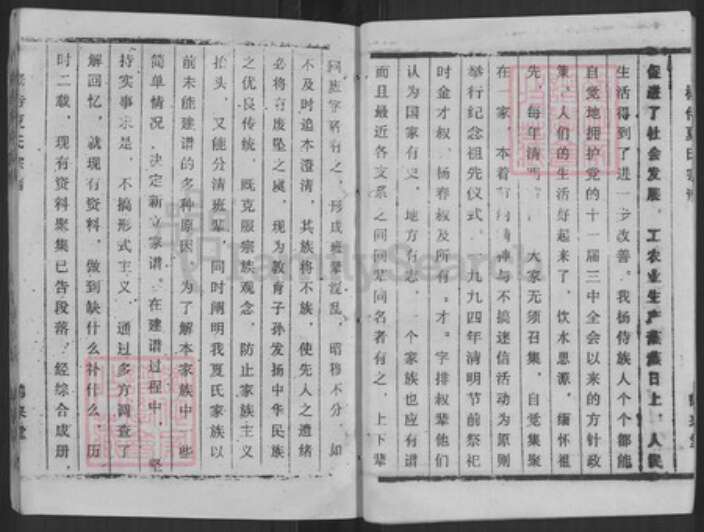 促进了社会发展，工农业生产蒸蒸日上，人民
生活得到了进一步改善。我杨侍族人个个都能
自觉地拥护党的十一届三中全会以来的方针政
策，人们的生活好起来了，饮水思源，缅怀祖
先，每年清明 大家无须召集，自觉集聚
在 家，本着 精神与不搞迷信活动为原则
举行纪念祖先仪式，一九九四年清明节前祭祀
时金才叔、杨春叔及所有“才”字排叔辈他们
认为国家有史，地方有志，一个家族也应有谱
而且最近各文系之间同辈同名者有之，上下辈
同班字 有之，形成班辈混乱，昭穆不分，如
不及时追本澄清，其族将不族，使先人之遗绪
必将有废坠之虞，现为教育子孙发扬中华民族
之优良传统，既克服宗族观念，防止家族主义
抬头，又能分清班辈，同时阐明我夏氏家族以
前未能建谱的多种原因，为了解本家族中一些
简单情况，决定新立家谱。在建谱过程中，坚
持实事求是，不搞形式主义，通过多方调查了
解回忆，就现有资料，做到缺什么补什么，历
时二载，现有资料聚集已告段落，经综合成册，
FamilySearch